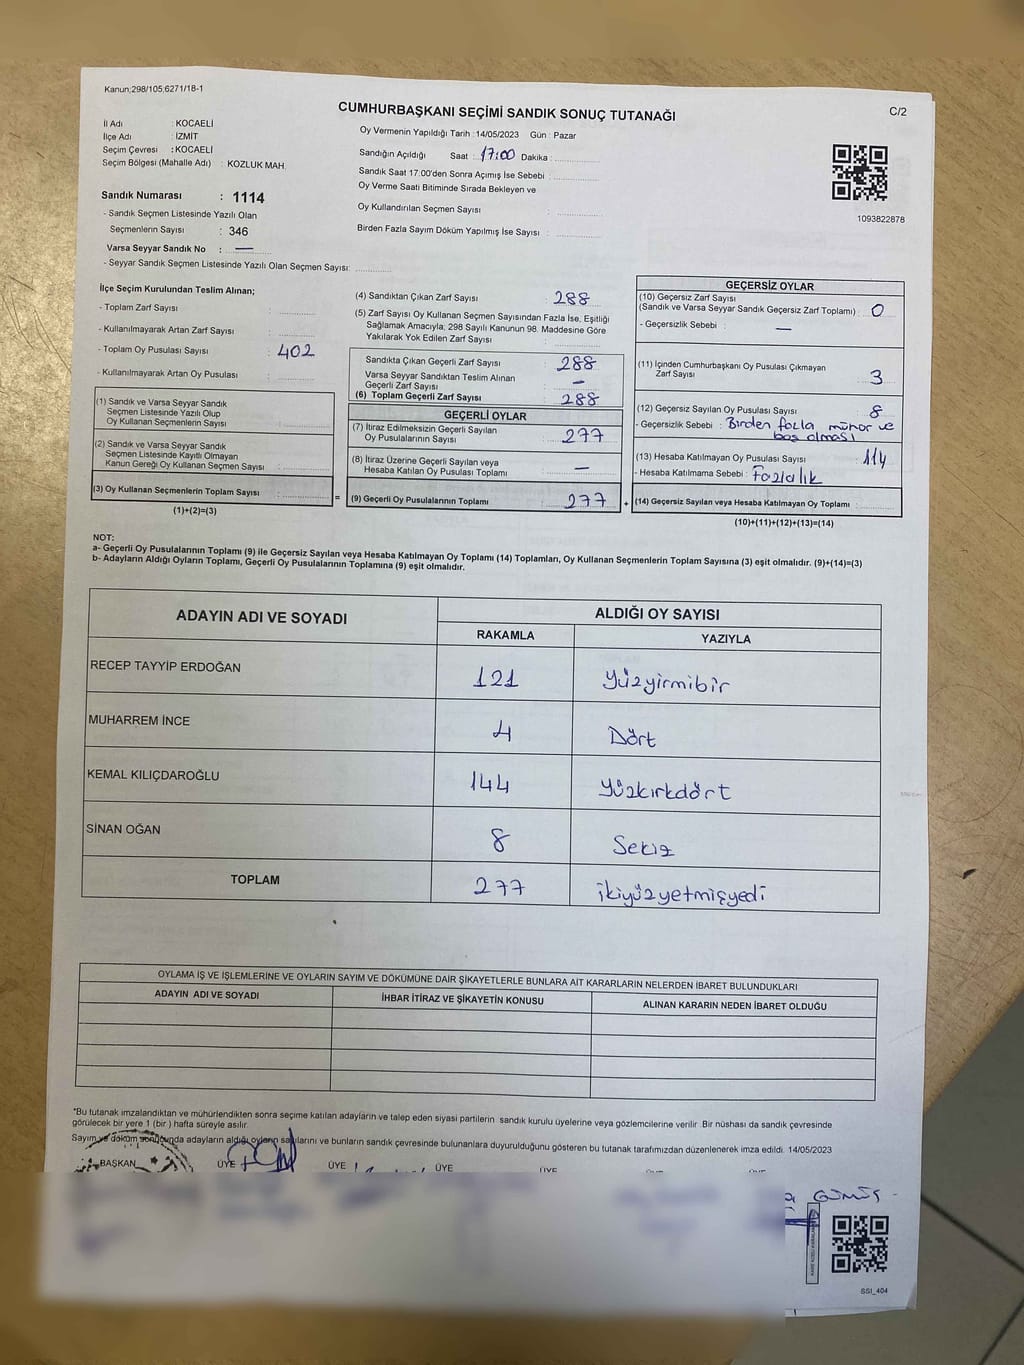 Kanun;298/105;6271/18-1
C/2
CUMHURBAŞKANI SEÇİMİ SANDIK SONUÇ TUTANAĞI
İl Adı : KOCAELİ
İlçe Adı : İZMİT
Seçim Çevresi : KOCAELİ
Seçim Bölgesi (Mahalle Adı) : KOZLUK MAH.
Sandık Numarası : 1114
- Sandık Seçmen Listesinde Yazılı Olan
Seçmenlerin Sayısı : 346
Varsa Seyyar Sandık No : —
- Seyyar Sandık Seçmen Listesinde Yazılı Olan Seçmen Sayısı:
Oy Vermenin Yapıldığı Tarih : 14/05/2023 Gün : Pazar
Sandığın Açıldığı Saat : 17:00 Dakika :
Sandık Saat 17:00'den Sonra Açımış İse Sebebi :
Oy Verme Saati Bitiminde Sırada Bekleyen ve
Oy Kullandırılan Seçmen Sayısı :
Birden Fazla Sayım Döküm Yapılmış İse Sayısı :
1093822878
İlçe Seçim Kurulundan Teslim Alınan;
- Toplam Zarf Sayısı :
- Kullanılmayarak Artan Zarf Sayısı :
- Toplam Oy Pusulası Sayısı : 402
- Kullanılmayarak Artan Oy Pusulası :
(1) Sandık ve Varsa Seyyar Sandık
Seçmen Listesinde Yazılı Olup
Oy Kullanan Seçmenlerin Sayısı :
(2) Sandık ve Varsa Seyyar Sandık
Seçmen Listesinde Kayıtlı Olmayan
Kanun Gereği Oy Kullanan Seçmen Sayısı :
(3) Oy Kullanan Seçmenlerin Toplam Sayısı :
(1)+(2)=(3)
=
(4) Sandıktan Çıkan Zarf Sayısı : 288
(5) Zarf Sayısı Oy Kullanan Seçmen Sayısından Fazla İse, Eşitliği
Sağlamak Amacıyla; 298 Sayılı Kanunun 98. Maddesine Göre
Yakılarak Yok Edilen Zarf Sayısı :
Sandıkta Çıkan Geçerli Zarf Sayısı : 288
Varsa Seyyar Sandıktan Teslim Alınan
Geçerli Zarf Sayısı : —
(6) Toplam Geçerli Zarf Sayısı : 288
GEÇERLİ OYLAR
(7) İtiraz Edilmeksizin Geçerli Sayılan
Oy Pusulalarının Sayısı : 277
(8) İtiraz Üzerine Geçerli Sayılan veya
Hesaba Katılan Oy Pusulası Toplamı : —
(9) Geçerli Oy Pusulalarının Toplamı : 277
+
GEÇERSİZ OYLAR
(10) Geçersiz Zarf Sayısı
(Sandık ve Varsa Seyyar Sandık Geçersiz Zarf Toplamı) : 0
- Geçersizlik Sebebi : —
(11) İçinden Cumhurbaşkanı Oy Pusulası Çıkmayan
Zarf Sayısı : 3
(12) Geçersiz Sayılan Oy Pusulası Sayısı : 8
- Geçersizlik Sebebi : Birden fazla mühür ve
boş olması
(13) Hesaba Katılmayan Oy Pusulası Sayısı : 114
- Hesaba Katılmama Sebebi : Fazlalık
(14) Geçersiz Sayılan veya Hesaba Katılmayan Oy Toplamı :
(10)+(11)+(12)+(13)=(14)
NOT:
a- Geçerli Oy Pusulalarının Toplamı (9) ile Geçersiz Sayılan veya Hesaba Katılmayan Oy Toplamı (14) Toplamları, Oy Kullanan Seçmenlerin Toplam Sayısına (3) eşit olmalıdır. (9)+(14)=(3)
b- Adayların Aldığı Oyların Toplamı, Geçerli Oy Pusulalarının Toplamına (9) eşit olmalıdır.
ADAYIN ADI VE SOYADI ALDIĞI OY SAYISI
RAKAMLA YAZIYLA
RECEP TAYYİP ERDOĞAN 121 Yüzyirmibir
MUHARREM İNCE 4 Dört
KEMAL KILIÇDAROĞLU 144 Yüzkırkdört
SİNAN OĞAN 8 Sekiz
TOPLAM 277 ikiyüzyetmişyedi
OYLAMA İŞ VE İŞLEMLERİNE VE OYLARIN SAYIM VE DÖKÜMÜNE DAİR ŞİKAYETLERLE BUNLARA AİT KARARLARIN NELERDEN İBARET BULUNDUKLARI
ADAYIN ADI VE SOYADI İHBAR İTİRAZ VE ŞİKAYETİN KONUSU ALINAN KARARIN NEDEN İBARET OLDUĞU
*Bu tutanak imzalandıktan ve mühürlendikten sonra seçime katılan adayların ve talep eden siyasi partilerin sandık kurulu üyelerine veya gözlemcilerine verilir. Bir nüshası da sandık çevresinde
görülecek bir yere 1 (bir ) hafta süreyle asılır.
Sayım ve döküm sonucunda adayların aldığı oyların sayılarını ve bunların sandık çevresinde bulunanlara duyurulduğunu gösteren bu tutanak tarafımızdan düzenlenerek imza edildi. 14/05/2023
BAŞKAN ÜYE ÜYE ÜYE ÜYE
GÜMÜŞ
SSI_404